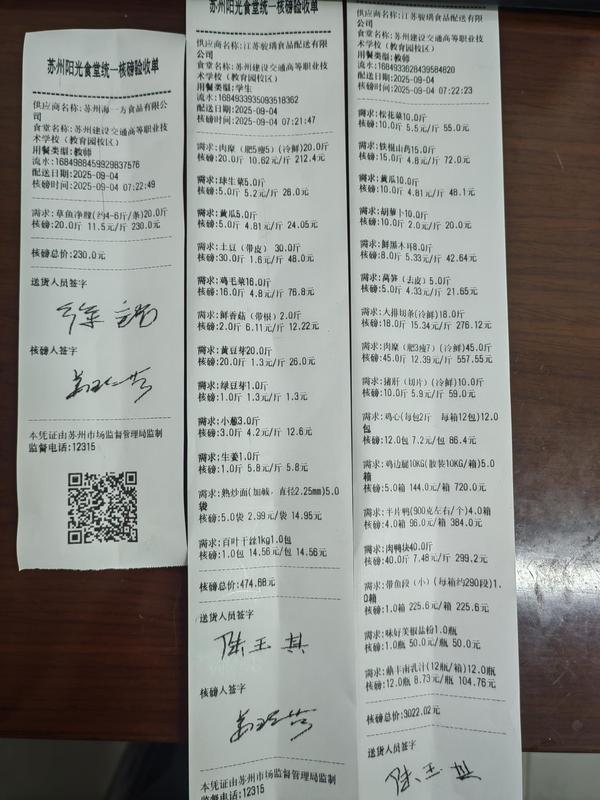 苏州阳光食堂统一核磅验收单
供应商名称:苏州海一方食品有限公
司
食堂名称:苏州建设交通高等职业技
术学校（教育园校区）
用餐类型:教师
流水:1684988459929837576
配送日期:2025-09-04
核磅时间:2025-09-04 07:22:49
需求:草鱼净膛(约4-6斤/条)20.0斤
核磅:20.0斤 11.5元/斤 230.0元
核磅总价:230.0元
送货人员签字
核磅人签字
本凭证由苏州市场监督管理局监制
监督电话:12315
苏州阳光食堂统一核磅验收单
供应商名称:江苏骏瑀食品配送有限
公司
食堂名称:苏州建设交通高等职业技
术学校（教育园校区）
用餐类型:学生
流水:1684933935093518362
配送日期:2025-09-04
核磅时间:2025-09-04 07:21:47
需求:肉糜（肥5瘦5）(冷鲜)20.0斤
核磅:20.0斤 10.62元/斤 212.4元
需求:球生菜5.0斤
核磅:5.0斤 5.2元/斤 26.0元
需求:黄瓜5.0斤
核磅:5.0斤 4.81元/斤 24.05元
需求:土豆（带皮） 30.0斤
核磅:30.0斤 1.6元/斤 48.0元
需求:鸡毛菜16.0斤
核磅:16.0斤 4.8元/斤 76.8元
需求:鲜香菇（带根）2.0斤
核磅:2.0斤 6.11元/斤 12.22元
需求:黄豆芽20.0斤
核磅:20.0斤 1.3元/斤 26.0元
需求:绿豆芽1.0斤
核磅:1.0斤 1.3元/斤 1.3元
需求:小葱3.0斤
核磅:3.0斤 4.2元/斤 12.6元
需求:生姜1.0斤
核磅:1.0斤 5.8元/斤 5.8元
需求:熟炒面(加碱，直径2.25mm)5.0
袋
核磅:5.0袋 2.99元/袋 14.95元
需求:百叶干丝1kg1.0包
核磅:1.0包 14.56元/包 14.56元
核磅总价:474.68元
送货人员签字
核磅人签字
本凭证由苏州市场监督管理局监制
监督电话:12315
供应商名称:江苏骏瑀食品配送有限
公司
食堂名称:苏州建设交通高等职业技
术学校（教育园校区）
用餐类型:教师
流水:1684933628439584820
配送日期:2025-09-04
核磅时间:2025-09-04 07:22:23
需求:松花菜10.0斤
核磅:10.0斤 5.5元/斤 55.0元
需求:铁棍山药15.0斤
核磅:15.0斤 4.8元/斤 72.0元
需求:黄瓜10.0斤
核磅:10.0斤 4.81元/斤 48.1元
需求:胡萝卜10.0斤
核磅:10.0斤 2.0元/斤 20.0元
需求:鲜黑木耳8.0斤
核磅:8.0斤 5.33元/斤 42.64元
需求:莴笋（去皮）5.0斤
核磅:5.0斤 4.33元/斤 21.65元
需求:大排切条(冷鲜)18.0斤
核磅:18.0斤 15.34元/斤 276.12元
需求:肉糜（肥3瘦7）(冷鲜)45.0斤
核磅:45.0斤 12.39元/斤 557.55元
需求:猪肝（切片）(冷鲜)10.0斤
核磅:10.0斤 5.9元/斤 59.0元
需求:鸡心(每包2斤 每箱12包)12.0
包
核磅:12.0包 7.2元/包 86.4元
需求:鸡边腿10KG(胶装10KG/箱)5.0
箱
核磅:5.0箱 144.0元/箱 720.0元
需求:半片鸭(900克左右/个)4.0箱
核磅:4.0箱 96.0元/箱 384.0元
需求:肉鸭块40.0斤
核磅:40.0斤 7.48元/斤 299.2元
需求:带鱼段（小）(每箱约290段)1.
0箱
核磅:1.0箱 225.6元/箱 225.6元
需求:味好美椒盐粉1.0瓶
核磅:1.0瓶 50.0元/瓶 50.0元
需求:鼎丰南乳汁(12瓶/箱)12.0瓶
核磅:12.0瓶 8.73元/瓶 104.76元
核磅总价:3022.02元
送货人员签字